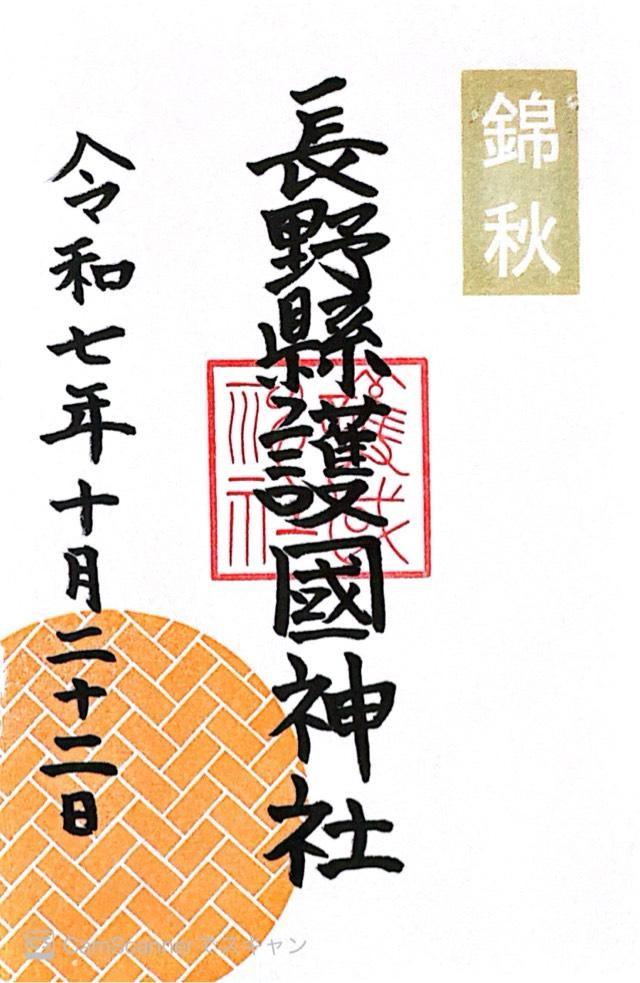 錦秋
長野縣護國神社
令和七年十月二十二日
CamScanner でスキャン